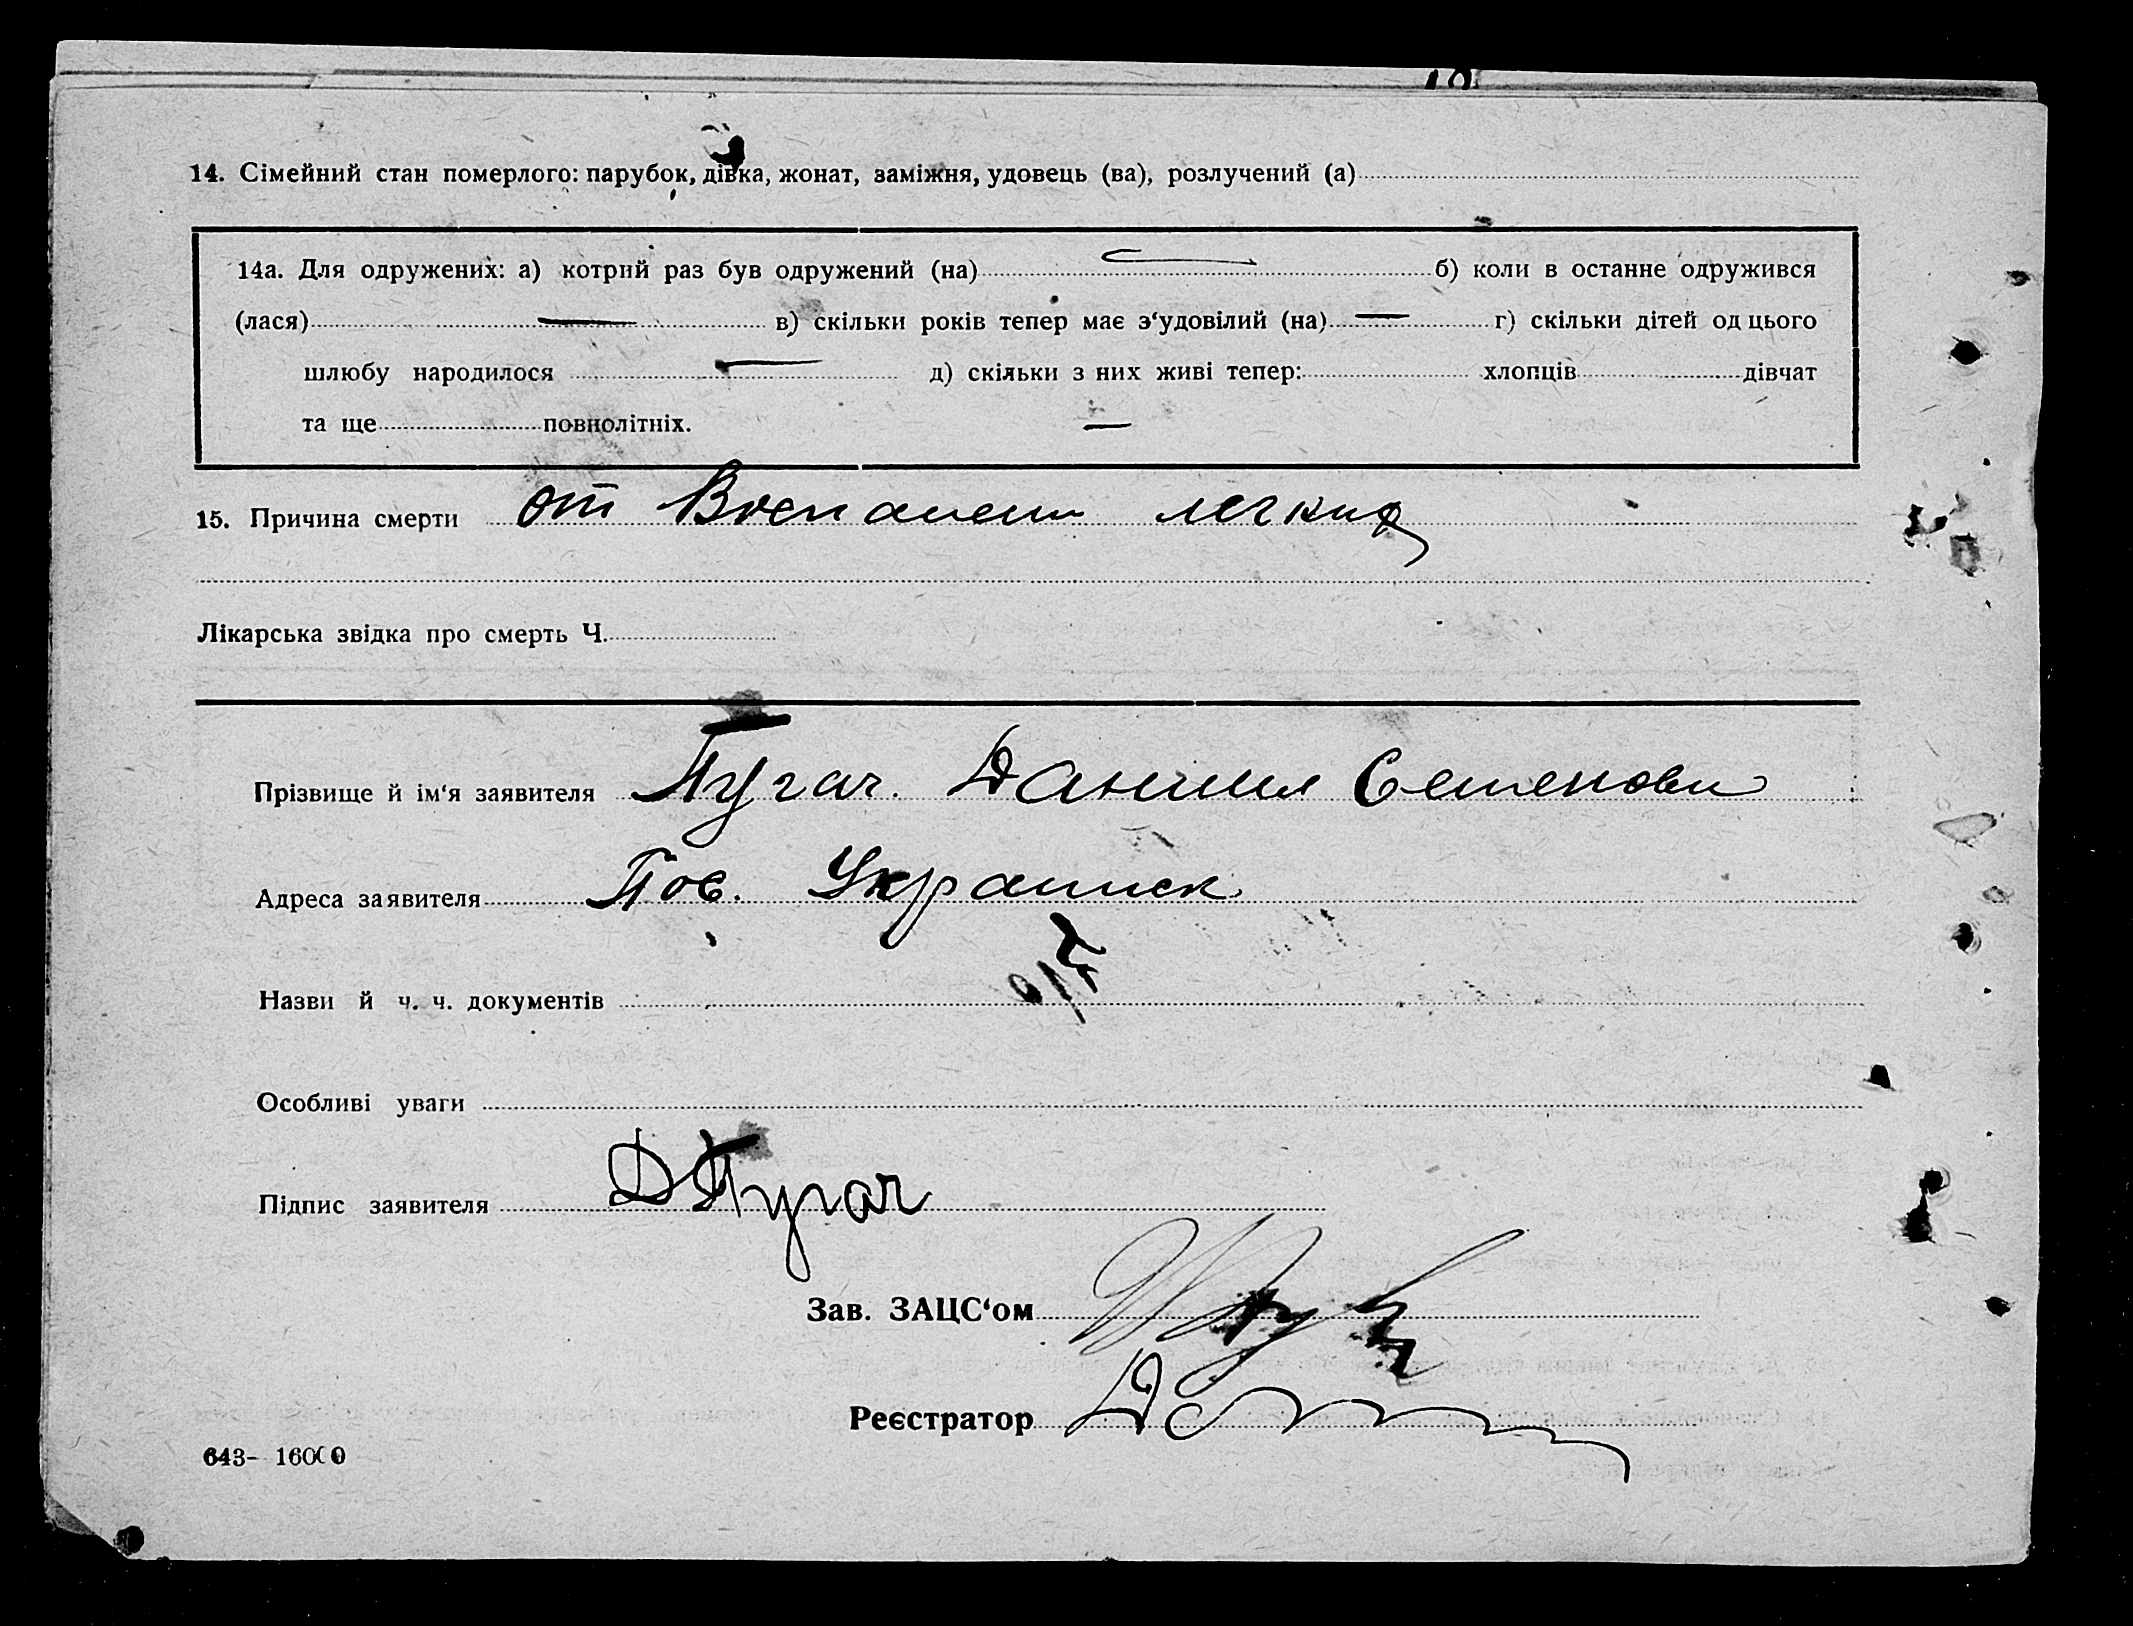 14. Сімейний стан померлого: парубок, дівка, жонат, заміжня, удовець (ва), розлучений (а)
14а. Для одружених: а) котрий раз був одружений (на) — б) коли в останне одружився
(лася) — в) скільки років тепер має з‘удовілий (на) — г) скільки дітей од цього
шлюбу народилося — д) скільки з них живі тепер: хлопців дівчат
та ще повнолітніх. —
15. Причина смерти от Воспалени легких
Лікарська звідка про смерть Ч.
Прізвище й ім‘я заявителя Пугач. Даниил Семенови
Адреса заявителя Пос. Украинск
Назви й ч. ч. документів
Особливі уваги
Підпис заявителя Д Пугач
Зав. ЗАЦС‘ом
Реєстратор
643- 16000